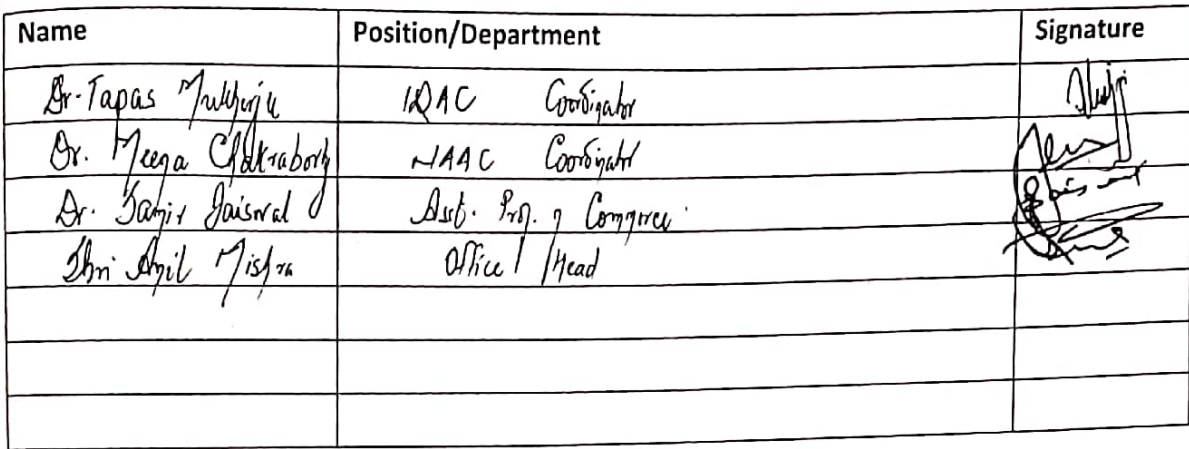 Name Position/Department Signature
Dr. Tapas Mukherjee IQAC Coordinator
Dr. Meena Chakraborty NAAC Coordinator
Dr. Samir Jaiswal Asst. Prof. of Commerce
Shri Anil Mishra Office Head